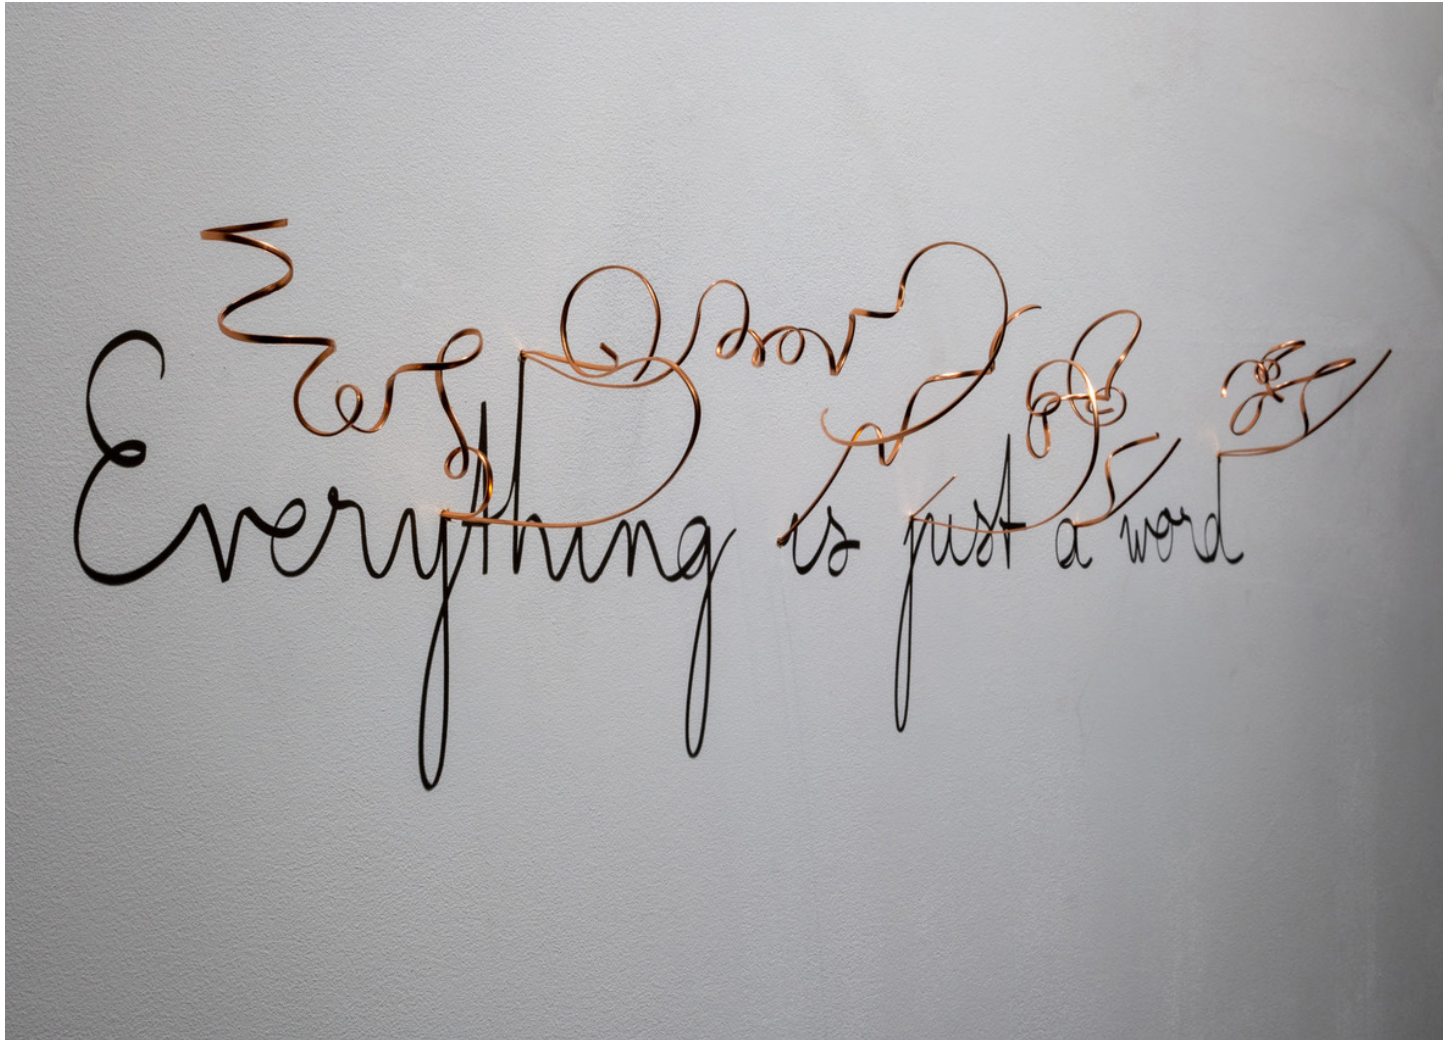 Everything is just a word